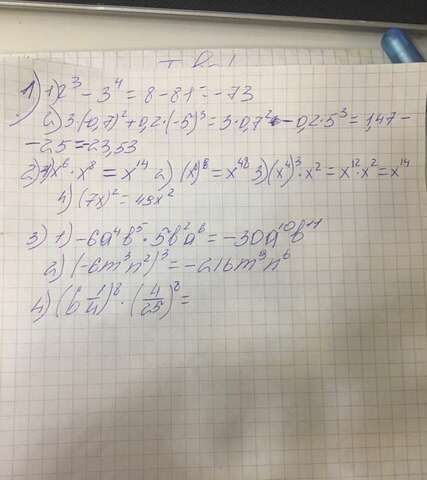 1) 1) 2³ - 3⁴ = 8 - 81 = -73
2) 3·(-0,7)² + 0,2·(-5)³ = 3·0,7² - 0,2·5³ = 1,47 -
- 25 = -23,53
2) 1) x⁶ · x⁸ = x¹⁴ 2) (x⁶)⁸ = x⁴⁸ 3) (x⁴)³ · x² = x¹² · x² = x¹⁴
4) (7x)² = 49x²
3) 1) -6a⁴b⁵ · 5b²a⁶ = -30a¹⁰b⁷
2) (-6m³n²)³ = -216m⁹n⁶
4) (6 1/4)⁸ · (4/25)⁸ =